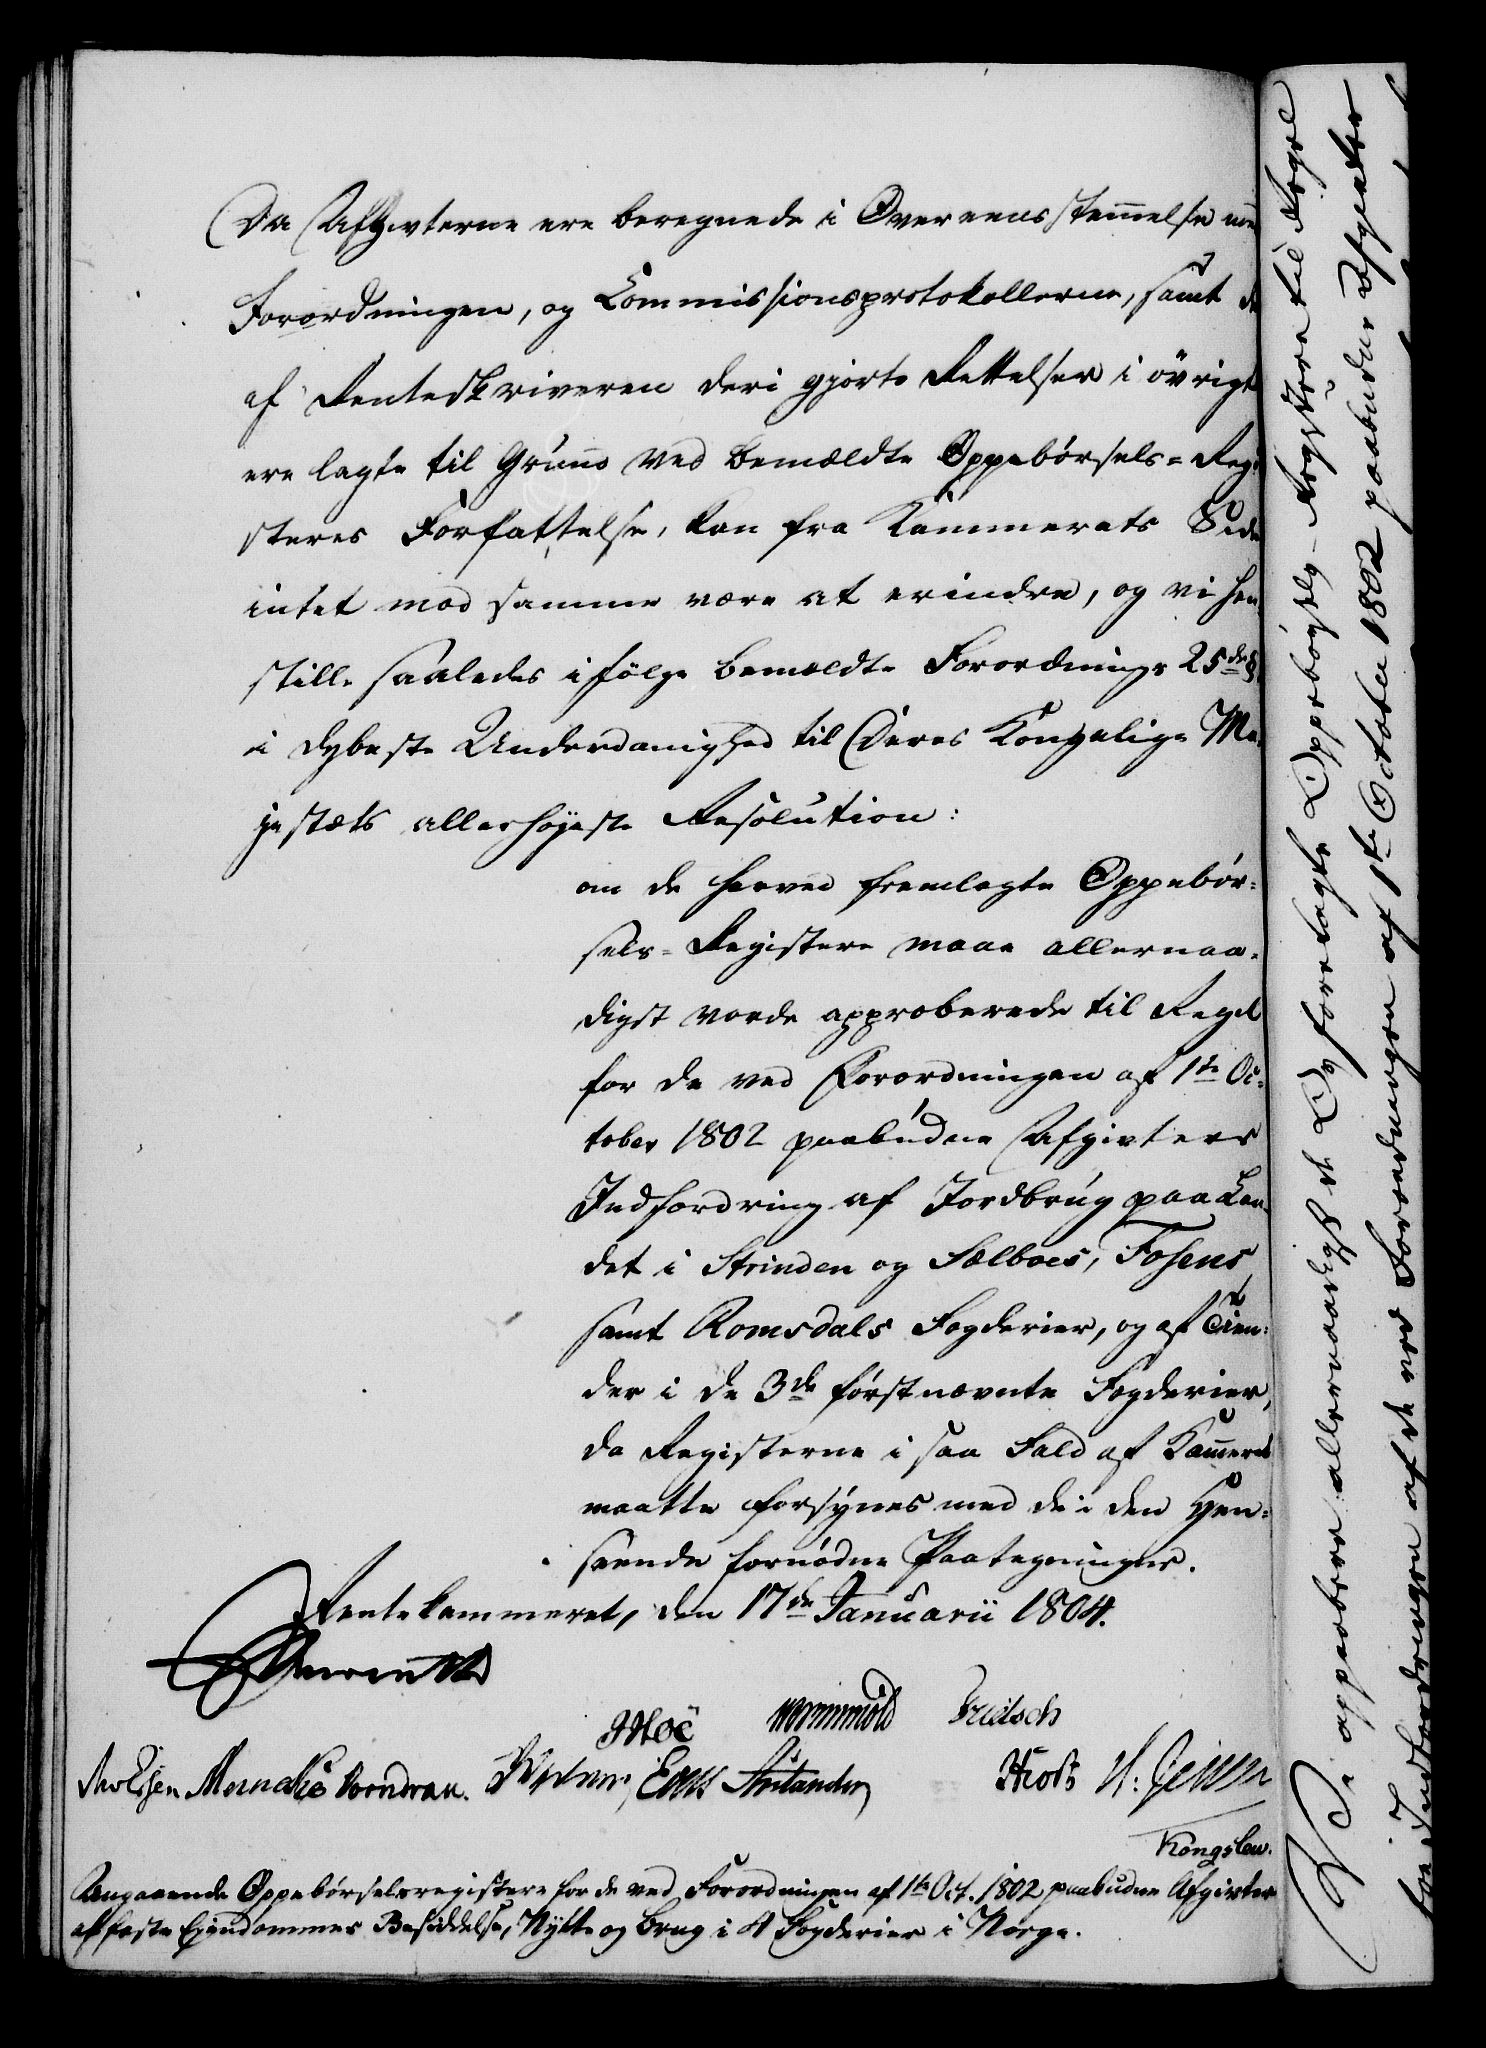 Da Afgivterne ere beregnede i Overeensstemmelse med
Forordningen, og Commissionsprotokollerne, samt de
af Renteskriveren deri gjorte Rettelser i övrigt
ere lagte til Grund ved bemældte Oppebörsels=Regi
steres Forfattelse, kan fra Kammerets Side
intet mod samme være at erindre, og vi hen
stille saaledes ifölge bemeldte Forordnings 25de §
i dybeste Underdanighed til Deres Kongelige Ma
jestæts allerhöjeste Resolution:
om de herved fremlagte Oppebör=
sels=Registere maae allernaa=
digst vorde approberede til Regel
for de ved Forordningen af 1te Oc=
tober 1802 paabudne Afgivters
Indfordring af Jordbrug paa Lan
det i Strinden og Sælboes, Fosens
samt Romsdals Fogderier, og af Tien=
der i de 3de förstnævnte Fogderier,
da Registerne i saa Fald af Kammeret
maatte forsynes med de i den Hen=
seende fornödne Paategninger.
Rentekammeret, den 17de Januarii 1804.
Wormskiold Fritsch
Kongslew.
Angaaende Oppebörselsregistere for de ved Forordningen af 1te Oct. 1802 paabudne Afgivter
af faste Ejendommes Besiddelse, Nytte og Brug i 4 Fogderier i Norge.
Vi approbere allernaadigst de Os forelagte Oppebörsels-Registere til Regel
for Indfordringen af de ved Forordningen af 1te October 1802 paabudne Afgivter